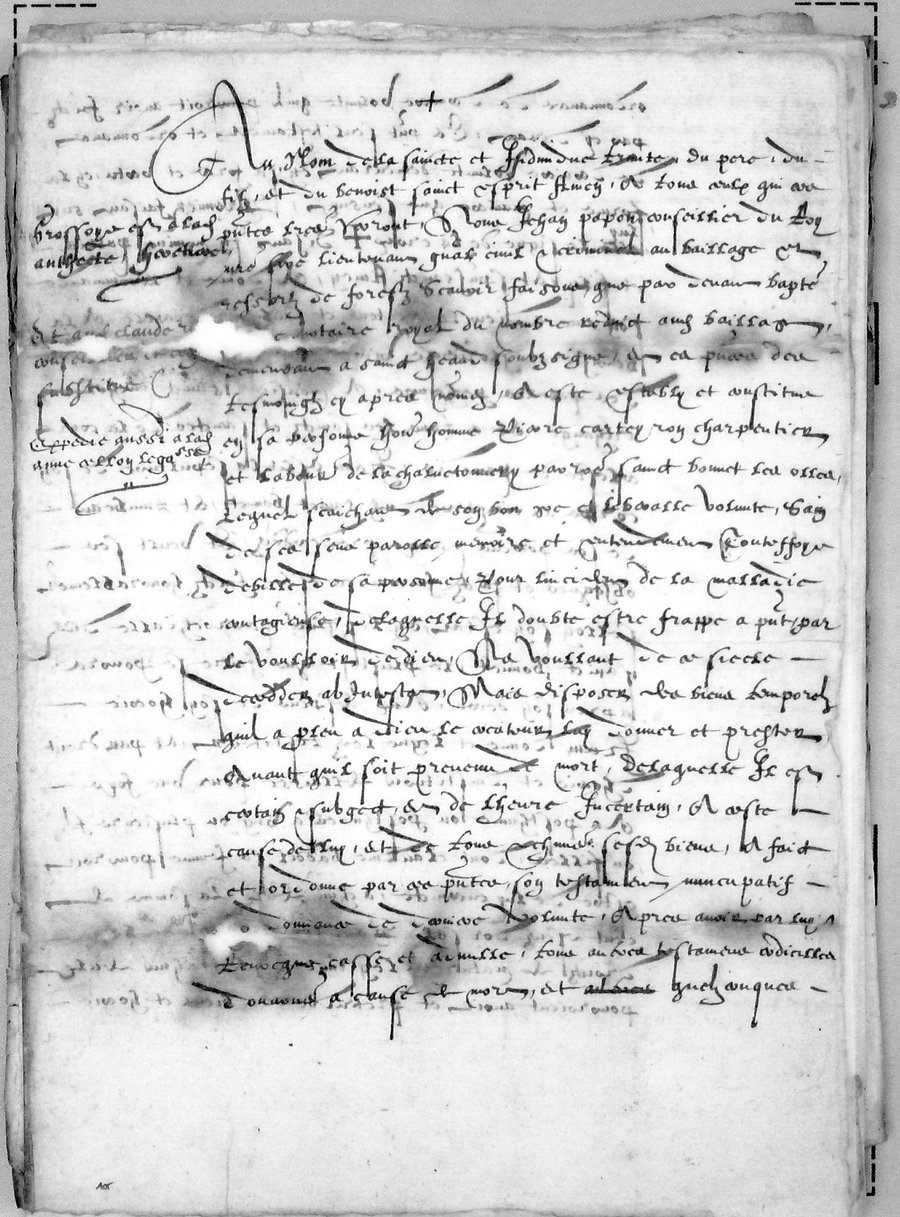 Au Nom de la saincte et Individue trinite, du pere, du
filz, et du benoist sainct esprit Amen, A tous ceulx qui ces
pntes lres verront, Nous Jehan papon conseillier du Roy
nre sire lieutenant gnal civil et criminel au bailliage et
ressort de forestz Scavoir faisons, que par devant bapte
notaire royal du nombre reduict aud bailliage,
demeurant a sainct heand soubzsigne, et en pnce des
tesmoingz cy apres nomez, A este estably et constitue
en sa personne hon homme Pierre carteyron charpentier
et laboureur de la chalnetonniery parroe sainct bonnet les olles,
Lequel saichant de son bon gre et liberalle volunte, Sain
de ses sens parolle, memoire et entendement Touteffoys
debille de sa personne, Pour lincident de la malladie
contagieuse, De laquelle Il doubte estre frappe a pnt, par
le voulloir de dieu, Ne voullant de ce siecle
decedder ab Intestat, Mais disposer des biens temporelz
quil a pleu a dieu le createur luy donner et prester
Avant quil soit prevenu de mort, de laquelle Il est
certain et subgect, et de lheure Incertain, A ceste
cause de luy, et de tous et chuns sesd biens, A faict
et ordonne par ces pntes, son testament nuncupatif
ordonnance de derniere volunte, Apres avoir par luy
Revocque, casse et adnulle, tous autres testamens codicilles
donations a cause de mort, et quelzconques
grossoye est a lad
anthoete, heretiere
Et aud claude
conseiller
substitue
Expedie aussi a lad
anne cellon legasse